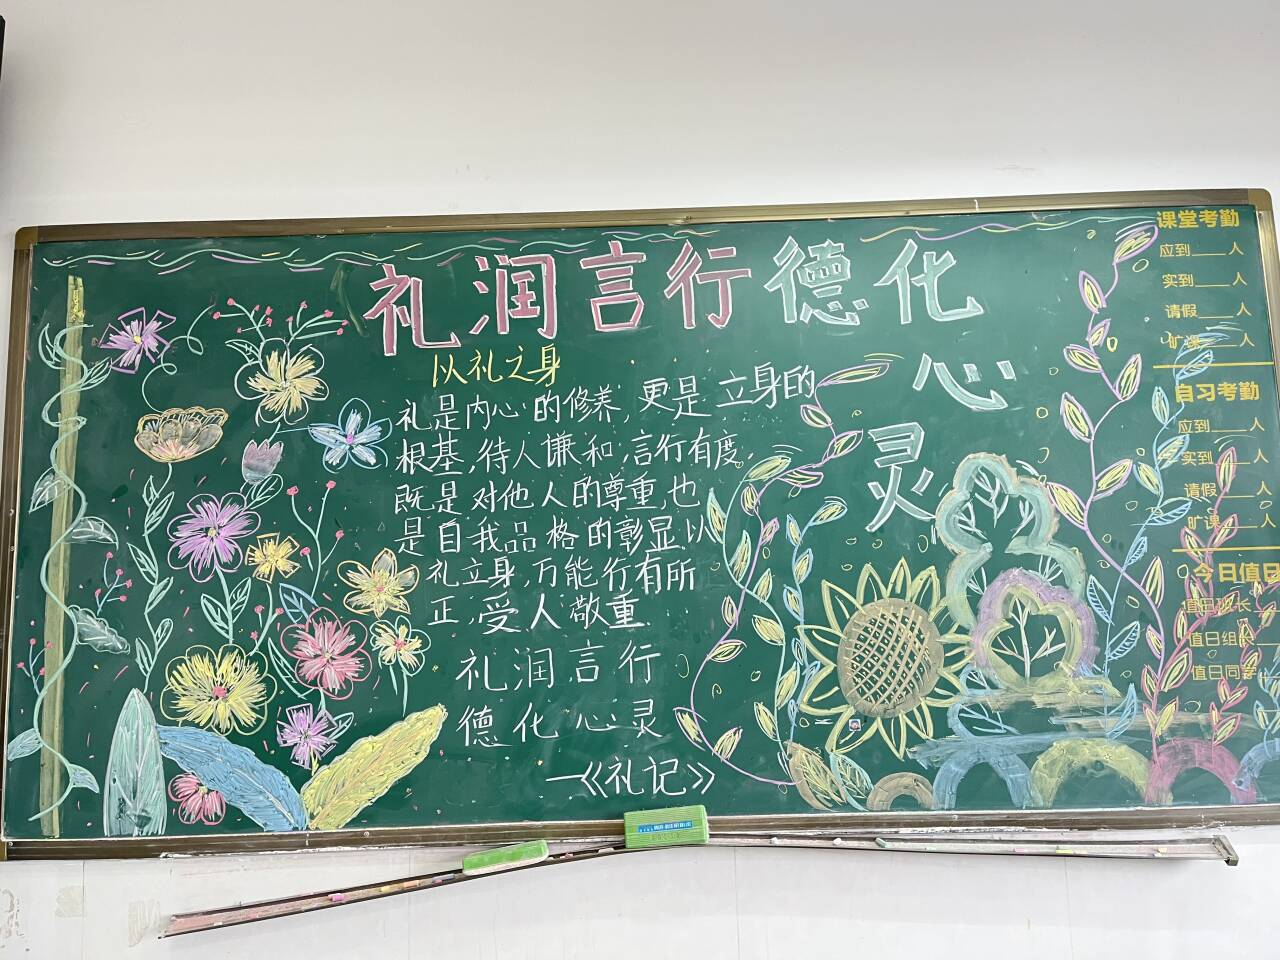 礼润言行德化
心
灵
以礼之身
礼是内心的修养,更是立身的
根基,待人谦和,言行有度,
既是对他人的尊重,也
是自我品格的彰显,以
礼立身,万能行有所
正,受人敬重
礼润言行
德化心灵
—《礼记》
课堂考勤
应到____人
实到____人
请假____人
旷课____人
自习考勤
应到____人
实到____人
请假____人
旷课____人
今日值日
值日班长
值日组长
值日同学